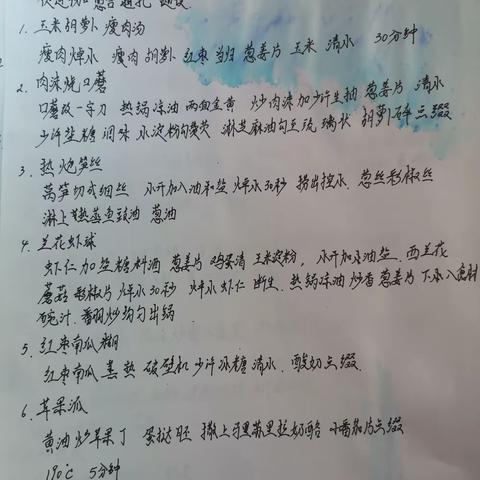 1. 玉米胡萝卜瘦肉汤
瘦肉焯水 瘦肉 胡萝卜 红枣 当归 葱姜片 玉米 清水 30分钟
2. 肉沫烧口蘑
口蘑改一字刀 热锅凉油 两面金黄 炒肉沫加少许生抽 葱姜片 清水
少许盐糖 调味 水淀粉勾芡 淋芝麻油勾至琉璃状 胡萝卜碎点缀
3. 热炝笋丝
莴笋切成细丝 水开加入油和盐 焯水30秒 捞出控水. 葱丝彩椒丝
淋上蒸鱼豉油 葱油
4. 兰花虾球
虾仁加盐糖料酒 葱姜片 鸡蛋清 玉米淀粉, 水开加油盐. 西兰花
蘑菇 彩椒片 焯水30秒 焯水虾仁 断生. 热锅凉油 炒香葱姜片 下入食材
碗汁. 翻炒均匀出锅
5. 红枣南瓜糊
红枣南瓜蒸熟 破壁机 少许冰糖 清水. 酸奶点缀.
6. 苹果派
黄油炒苹果丁 蛋挞胚 撒上马里苏里拉奶酪 小番茄片点缀
190℃ 5分钟